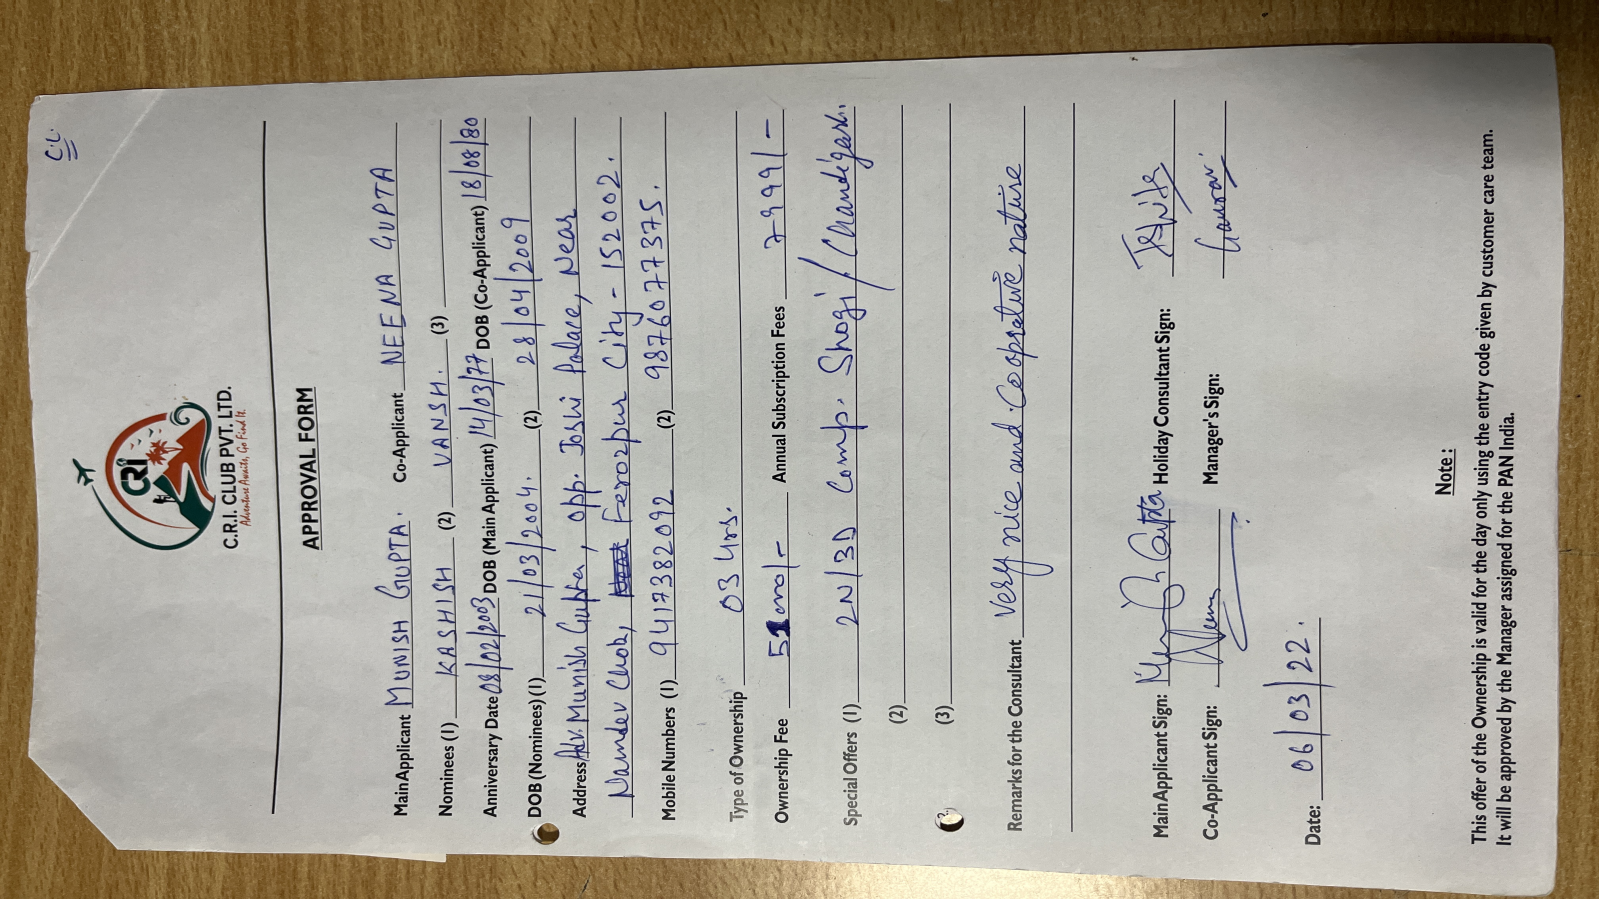 C.L.
CRI
C.R.I. CLUB PVT. LTD.
Adventure Awaits, Go Find It.
APPROVAL FORM
Main Applicant MUNISH GUPTA. Co-Applicant NEENA GUPTA
Nominees (1) KASHISH (2) VANSH. (3)
Anniversary Date 08/02/2003 DOB (Main Applicant) 14/03/77 DOB (Co-Applicant) 18/08/80
DOB (Nominees) (1) 21/03/2004. (2) 28/04/2009
Address Adv. Munish Gupta, opp. Joshi Palace, Near
Namdev Chok, Ferozpur City - 152002.
Mobile Numbers (1) 9417382092 (2) 9876077375.
Type of Ownership 03 Yrs.
Ownership Fee Annual Subscription Fees 7999/-
Special Offers (1) 2N/3D Comp. Shogi/Chandigarh.
(2)
(3)
Remarks for the Consultant Very nice and Cooprative nature
Main Applicant Sign: Munish Gupta Holiday Consultant Sign:
Co-Applicant Sign: Manager's Sign: Gaurav
Date: 06/03/22.
Note :
This offer of the Ownership is valid for the day only using the entry code given by customer care team.
It will be approved by the Manager assigned for the PAN India.